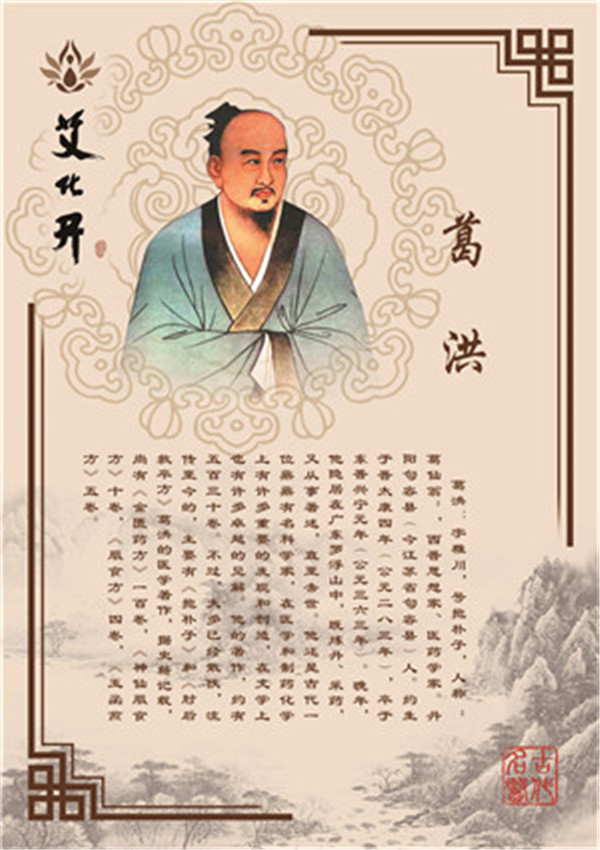 艾化开
葛洪
葛洪：字雅川，号抱朴子，人称：
葛仙翁：，西晋思想家、医药学家。丹
阳句容县（今江苏省句容县）人。约生
于晋太康四年（公元二八三年），卒于
东晋兴宁元年（公元三六三年）。晚年，
他隐居在广东罗浮山中，既炼丹、采药，
又从事著述，直至去世。他还是古代一
位鼎鼎有名科学家，在医学和制药化学
上有许多重要的发现和创造，在文学上
也有许多卓越的见解。他的著作，约有
五百三十卷。不过，大多已经散佚，流
传至今的，主要有《抱朴子》和《肘后
救卒方》葛洪的医学著作，据史籍记载，
尚有《金匮药方》一百卷，《神仙服食
方》十卷，《服食方》四卷，《玉函煎
方》五卷。
古代
名医